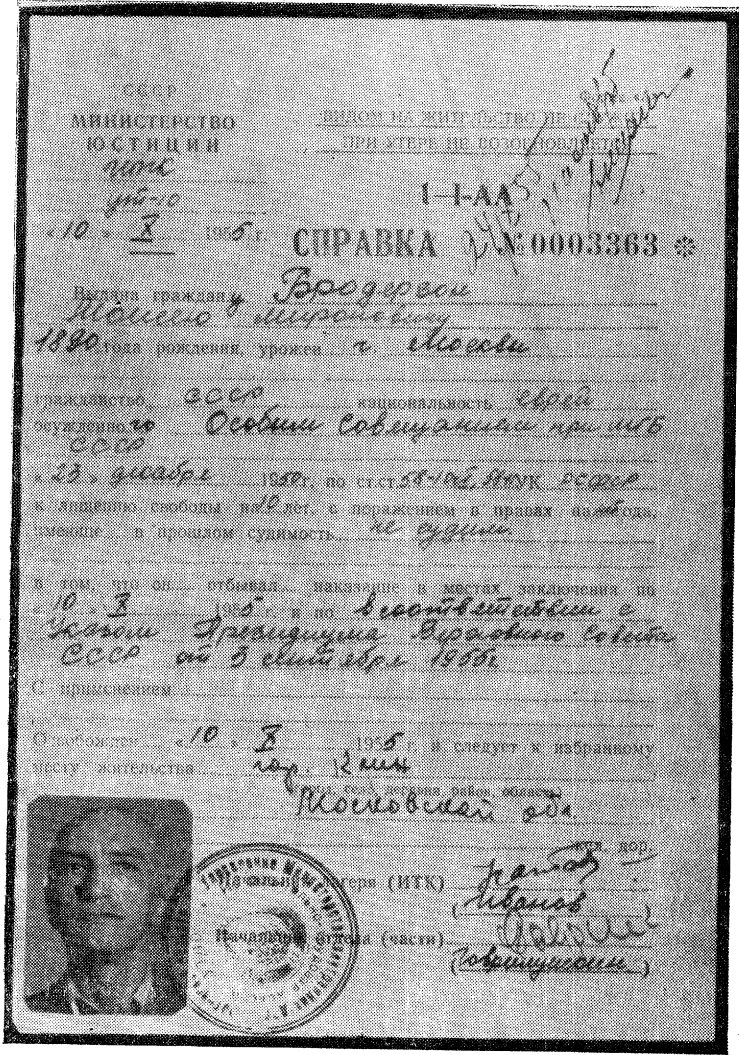 СССР
МИНИСТЕРСТВО
ЮСТИЦИИ
ВИДОМ НА ЖИТЕЛЬСТВО НЕ
ПРИ УТЕРЕ НЕ ВОЗОБНОВЛЯЕТСЯ
ут-10
1—I-АА
« 10 » X 1955 г.
СПРАВКА № 0003363 ✻
Выдана граждан у Бродерзон
Моисею Мироновичу
1890 года рождения, урожен г Москвы
гражданство СССР национальность еврей
осужденно го Особым Совещанием при МГБ
СССР
« 23 » декабря 1950 г. по ст.ст. 58-10 УК РСФСР
к лишению свободы на 10 лет, с поражением в правах на года,
имеюще в прошлом судимость не судим.
в том, что он отбывал наказание в местах заключения по
« 10 » X 1955 г. и по в соответствии с
Указом Президиума Верховного Совета
СССР от 3 сентября 1955г.
С применением
Освобожден « 10 » X 1955 г. и следует к избранному
месту жительства гор. Клин
село, деревня, район, область)
Московской обл.
жел. дор.
Начальник лагеря (ИТК)
(Иванов)
Начальник отдела (части)